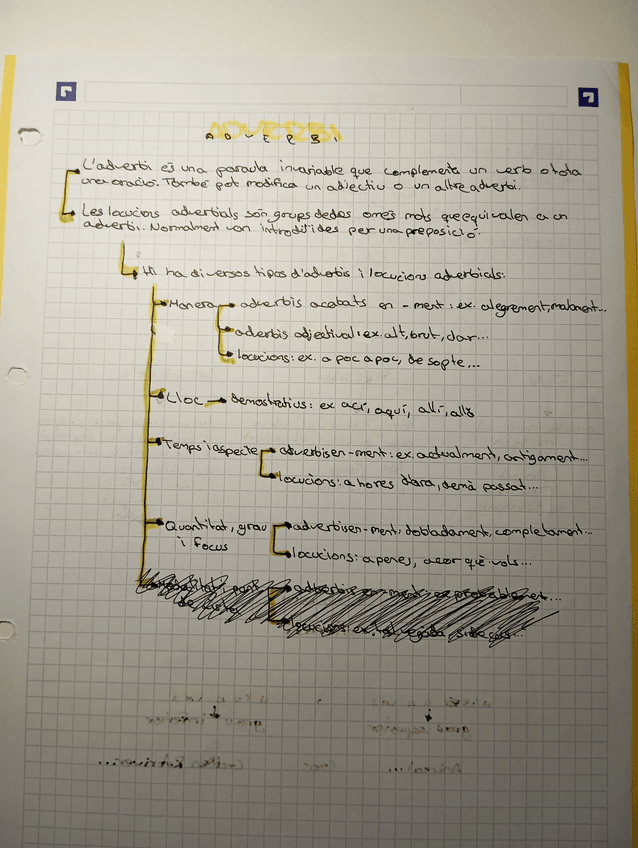 ADVERBI
L'adverbi és una paraula invariable que complementa un verb o tota
una oració. També pot modifica un adjectiu o un altre adverbi.
Les locucions adverbials són grups de dos o més mots que equivalen a un
adverbi. Normalment van introduïdes per una preposició.
Hi ha diversos tipos d'adverbis i locucions adverbials:
Manera adverbis acabats en -ment: ex. alegrement, malament...
adverbis adjectival: ex. alt, brut, clar...
locucions: ex. a poc a poc, de sopte,...
Lloc demostratius: ex ací, aquí, allí, allà
Temps i aspecte adverbis en -ment: ex. actualment, antigament...
locucions: a hores d'ara, demà passat...
Quantitat, grau adverbis en -ment: dobladament, completament...
i focus locucions: a penes, a cor què vols...